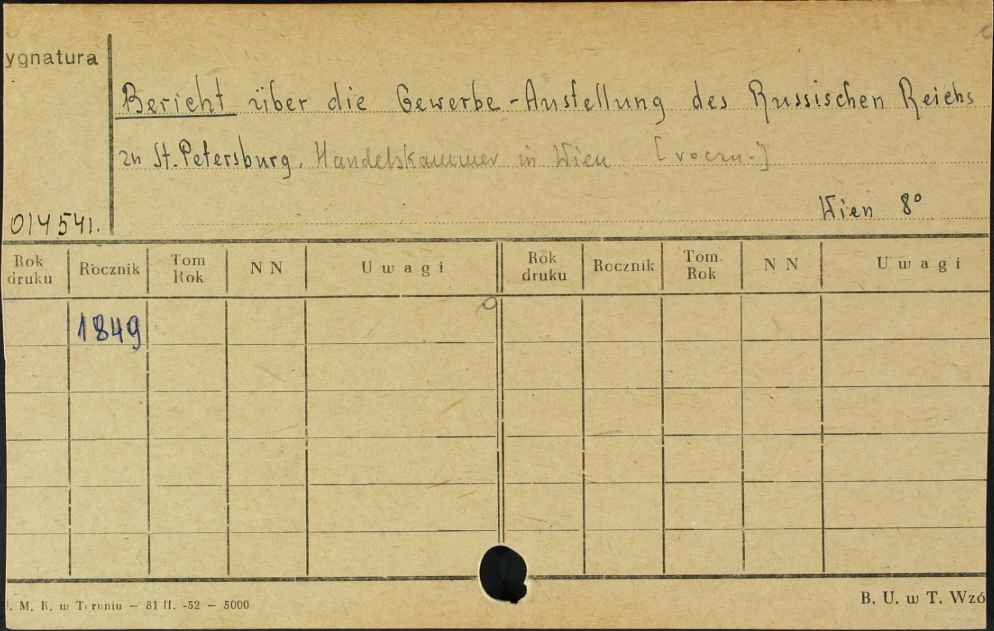 ygnatura
Bericht über die Gewerbe-Austellung des Russischen Reichs
zu St. Petersburg. Handelskammer in Wien [roczn.]
Wien 8°
014541.
Rok druku Rocznik Tom Rok NN Uwagi Rok druku Rocznik Tom Rok NN Uwagi
1849
. M. K. w Toruniu — 81 II. -52 — 5000
B. U. w T. Wzó